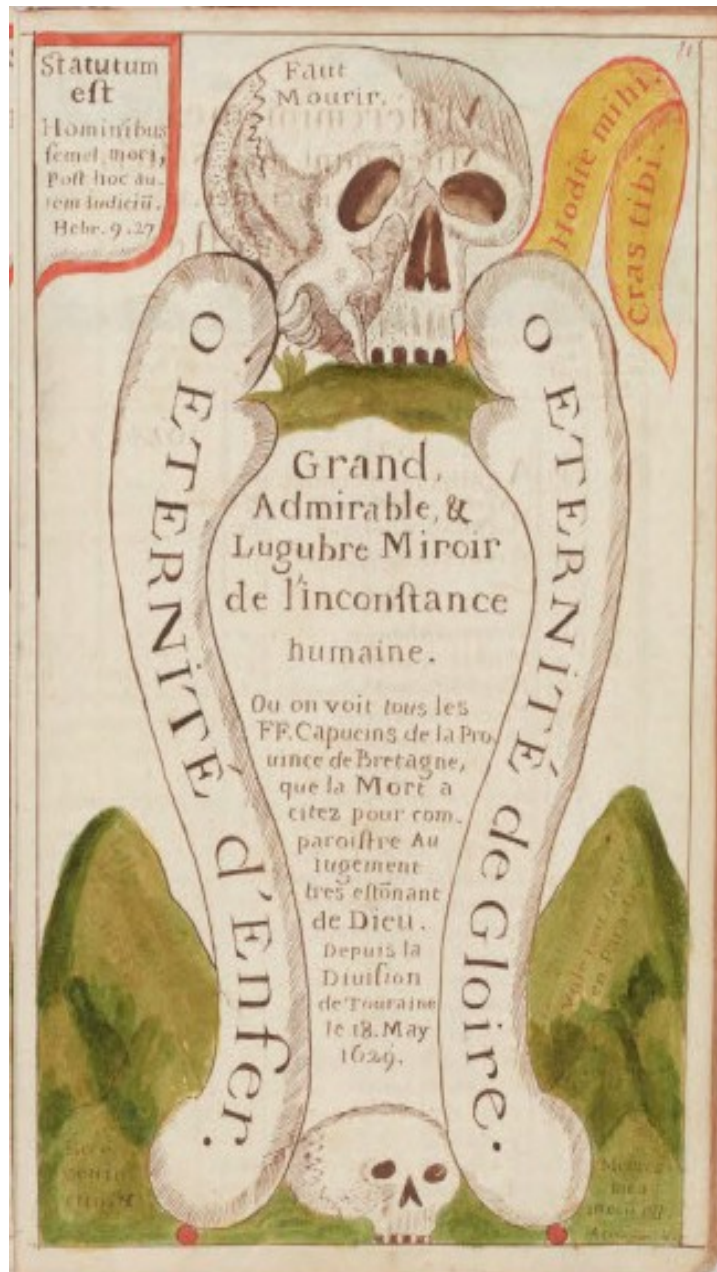 Statutum
est
Hominibus
semel mori,
Post hoc au-
tem Iudiciū.
Hebr. 9. 27
Faut
Mourir.
Hodie mihi.
Cras tibi.
O ETERNITÉ d'Enfer.
O ETERNITÉ de Gloire.
Grand,
Admirable, &
Lugubre Miroir
de l'inconstance
humaine.
Ou on voit tous les
FF. Capucins de la Pro
uince de Bretagne,
que la Mort a
citez pour com-
paroistre Au
Iugement
tres estōnant
de Dieu.
Depuis la
Diuision
de Touraine
le 18. May
1629.